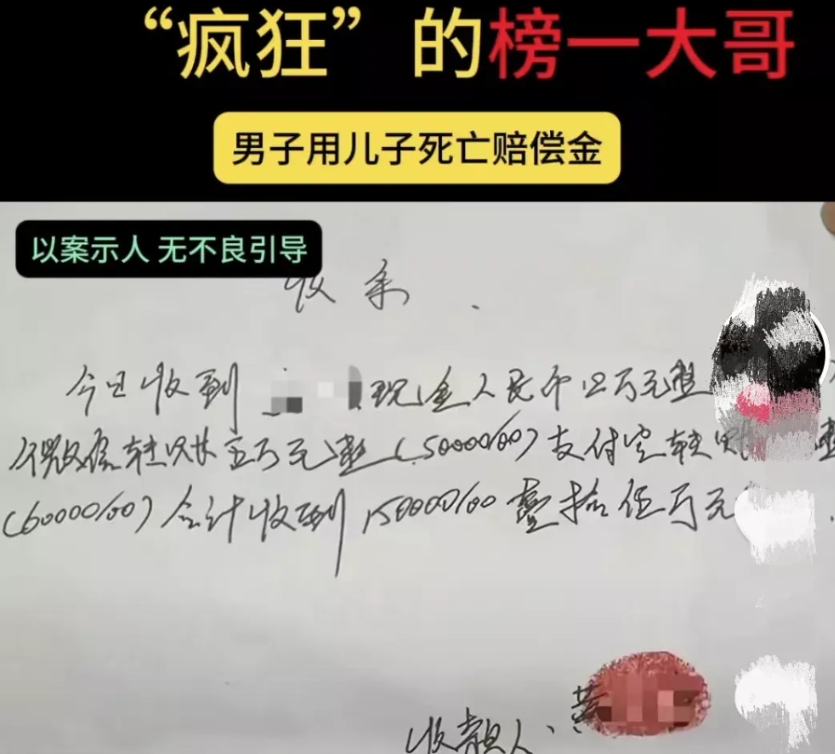 “疯狂”的榜一大哥
男子用儿子死亡赔偿金
以案示人 无不良引导
收条
今日收到 现金人民币四万元整
微信转账五万元整(50000/00)支付宝转账
(60000/00)合计收到150000/00壹拾伍万元
收款人: 黄